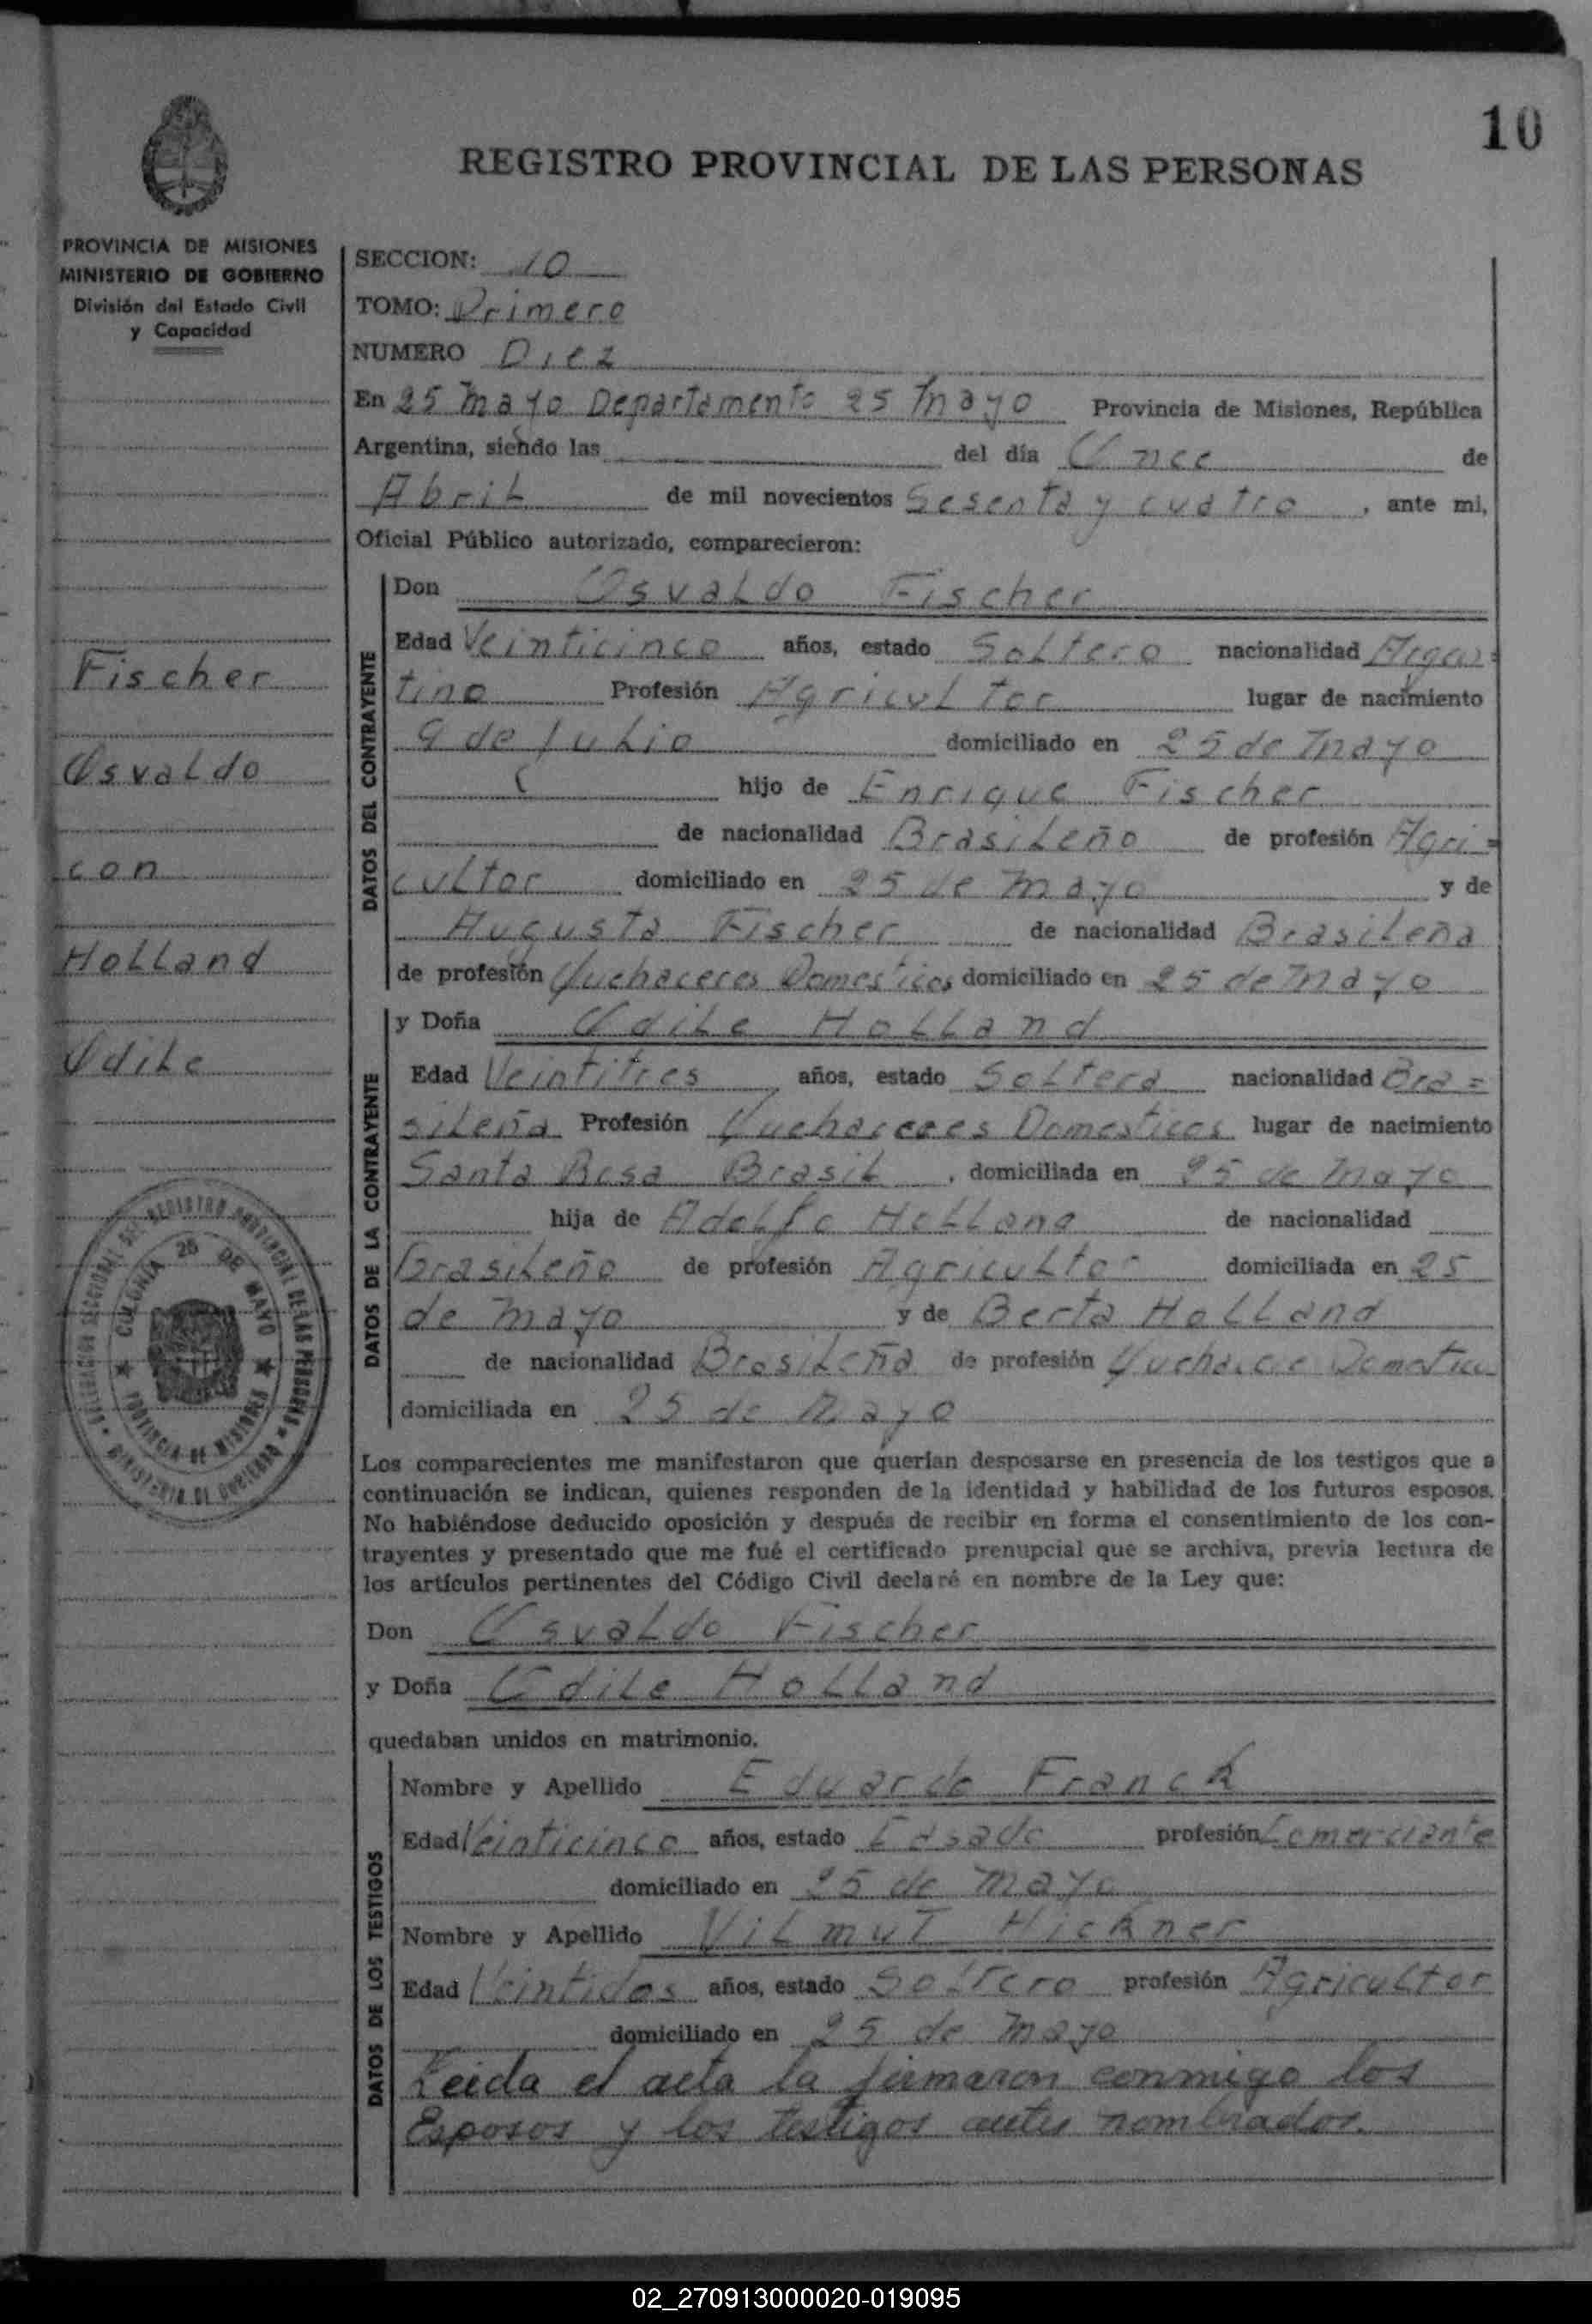 10
REGISTRO PROVINCIAL DE LAS PERSONAS
PROVINCIA DE MISIONES
MINISTERIO DE GOBIERNO
División del Estado Civil
y Capacidad
Fischer
Osvaldo
con
Holland
Odile
DELEGACION SECCIONAL DEL REGISTRO PROVINCIAL DE LAS PERSONAS
MINISTERIO DE GOBIERNO
COLONIA 25 DE MAYO
PROVINCIA DE MISIONES
SECCION: 10
TOMO: Primero
NUMERO Diez
En 25 Mayo Departamento 25 Mayo Provincia de Misiones, República
Argentina, siendo las del día Once de
Abril de mil novecientos Sesenta y cuatro, ante mi,
Oficial Público autorizado, comparecieron:
DATOS DEL CONTRAYENTE
Don Osvaldo Fischer
Edad Veinticinco años, estado Soltero nacionalidad Argen=
tino Profesión Agricultor lugar de nacimiento
9 de Julio domiciliado en 25 de Mayo
hijo de Enrique Fischer
de nacionalidad Brasileño de profesión Agri=
cultor domiciliado en 25 de Mayo y de
Augusta Fischer de nacionalidad Brasileña
de profesión Quehaceres Domesticos domiciliado en 25 de Mayo
DATOS DE LA CONTRAYENTE
y Doña Odile Holland
Edad Veintitres años, estado Soltera nacionalidad Bra=
sileña Profesión Quehaceres Domesticos lugar de nacimiento
Santa Rosa Brasil, domiciliada en 25 de Mayo
hija de Adolfo Holland de nacionalidad
Brasileño de profesión Agricultor domiciliada en 25
de Mayo y de Berta Holland
de nacionalidad Brasileña de profesión
domiciliada en 25 de Mayo
Los comparecientes me manifestaron que querían desposarse en presencia de los testigos que a
continuación se indican, quienes responden de la identidad y habilidad de los futuros esposos.
No habiéndose deducido oposición y después de recibir en forma el consentimiento de los con-
trayentes y presentado que me fué el certificado prenupcial que se archiva, previa lectura de
los artículos pertinentes del Código Civil declaré en nombre de la Ley que:
Don Osvaldo Fischer
y Doña Odile Holland
quedaban unidos en matrimonio.
DATOS DE LOS TESTIGOS
Nombre y Apellido Eduardo Franck
Edad Veinticinco años, estado Casado profesión Comerciante
domiciliado en 25 de Mayo
Nombre y Apellido Vilmut Hickner
Edad Veintidos años, estado Soltero profesión Agricultor
domiciliado en 25 de Mayo
Leida el acta la firmaron conmigo los
Esposos y los testigos antes nombrados.
02_270913000020-019095